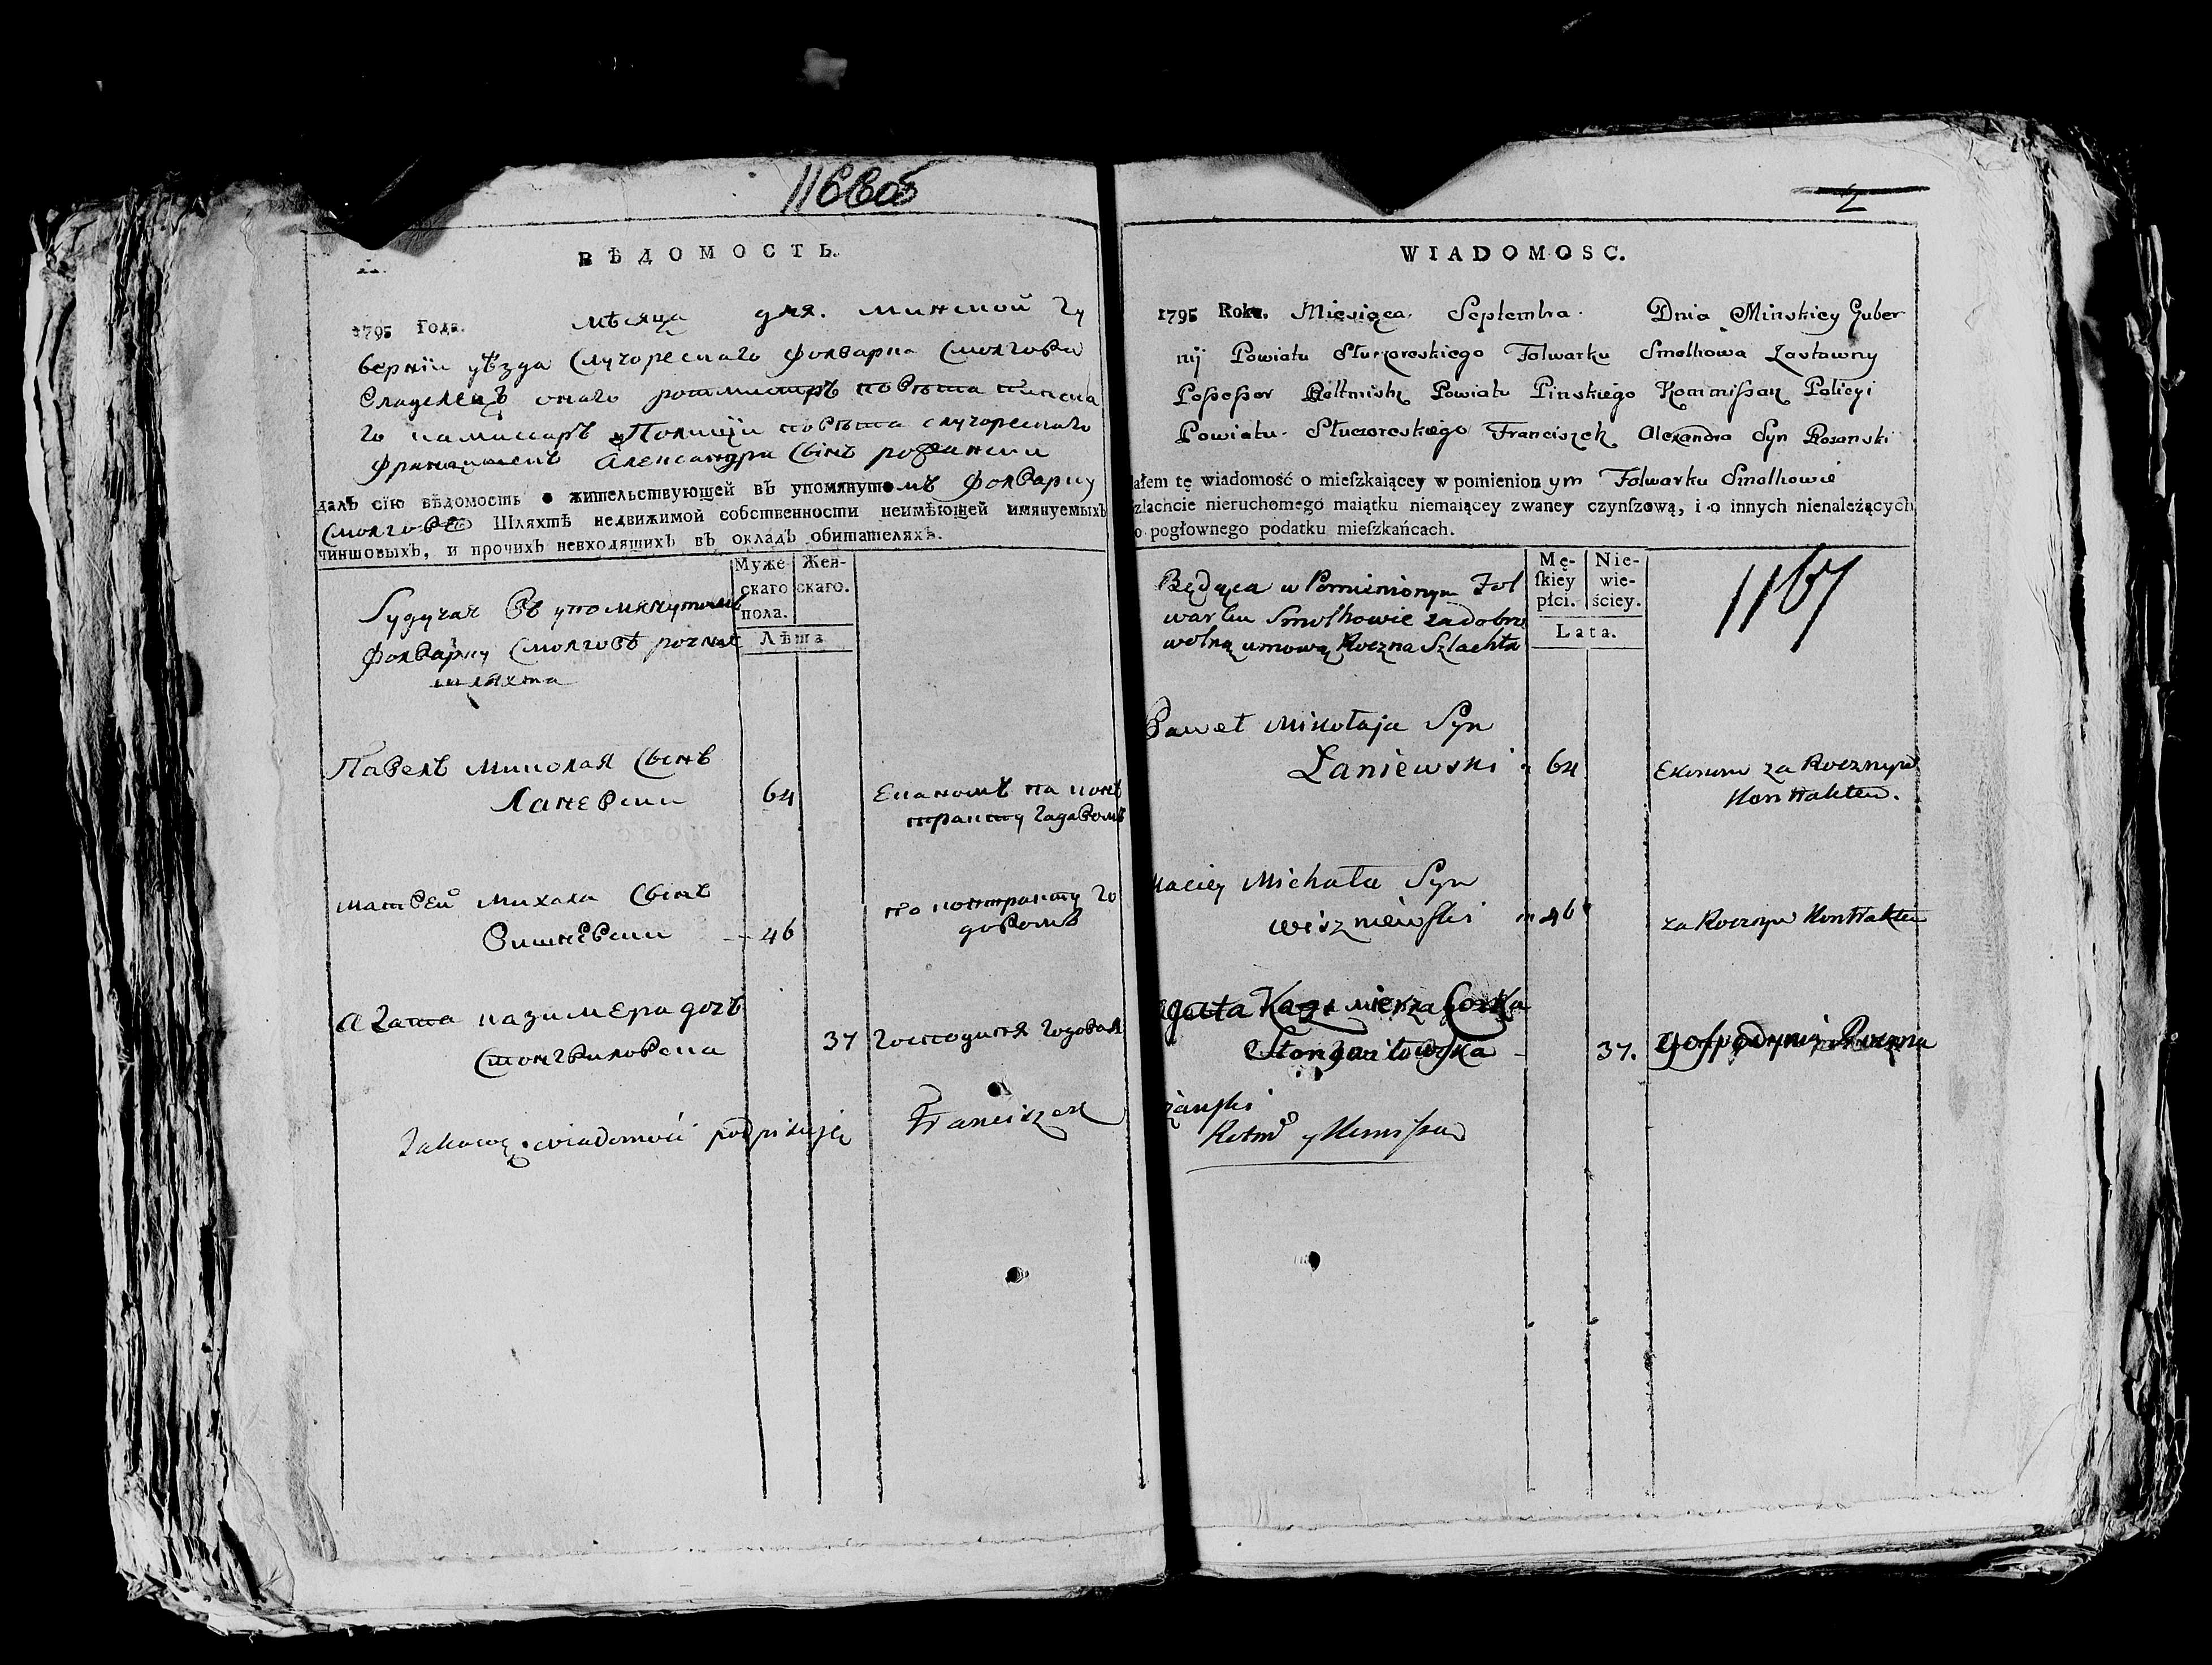 1166об
ВѢДОМОСТЬ.
1795 Года. мѣсяца дня. минской Гу
берніи уѣзда Случорескаго фолварка Смолгова
владелецъ онаго ротмистръ повета пинска
го камисаръ Полиціи повета случорескаго
францишекъ Александра Сынъ рожански
далъ сїю вѣдомость о жительствующей въ упомянутомъ фолварку
Смолгове Шляхтѣ недвижимой собственности неимѣющей имянуемыхъ
чиншовыхъ, и прочихъ невходящихъ въ окладъ обитателяхъ.
Муже-скаго пола. Жен-скаго.
Лѣта
Будучая въ упомянутомъ
фолварку Смолговѣ рочная
шляхта
Павелъ миколая Сынъ
Ланевски 64 Економъ на кон
тракту гадавомъ
матвей михала Сынъ
вишневски 46 по контракту го
довомъ
агата казимера дочъ
Стонгвиловска 37 господиня годовая
Takową wiadomość podpisuję Franciszek
2
WIADOMOSC.
1795 Roku. Miesiąca. Septembra. Dnia Minskiey Guber
nij Powiatu Słuczoreskiego Folwarku Smolhowa Zastawny
Possessor Rottmistrz Powiatu Pinskiego Kommissarz Policyi
Powiatu Słuczoreskiego Franciszek Alexandra Syn Rozanski
ałem tę wiadomość o mieſzkaiącey w pomienionym Folwarku Smolhowie
zlachcie nieruchomego maiątku niemaiącey zwaney czynſzową, i o innych nienależących
o pogłownego podatku mieſzkańcach.
Mę-ſkiey płci. Nie-wie-ściey.
Lata.
1167
Będąca w Pomienionym Fol
warku Smolhowie za dobro
wolną umową Roczna Szlachta
Paweł Mikołaja Syn
Łaniewski 64 Ekonom za Rocznym
Kontraktem.
Maciey Michała Syn
wiszniewski 46 za Rocznym Kontraktem
Agata Kazimierza Corka
Stongwiłowska 37. Gospodynia Roczna
żanski
Rotm y Komissarz